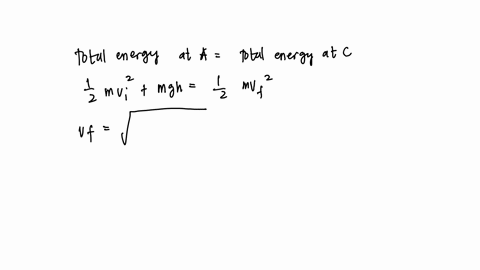 Total energy at A = Total energy at C
1/2 mv_i^2 + mgh = 1/2 mv_f^2
vf = √